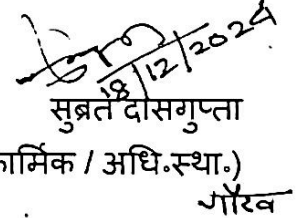 18/12/2024
सुब्रत दासगुप्ता
ार्मिक / अधि॰स्था॰)
गौरव